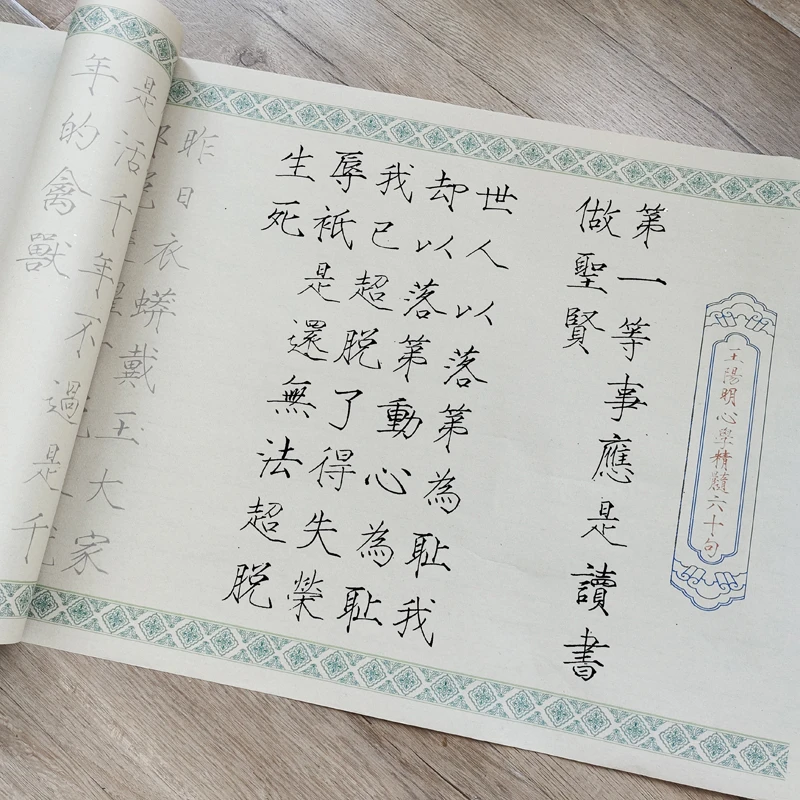 王陽明心學精髓六十句
第一等事應是讀書
做聖賢
世人以落第為耻我
却以落第動心為耻
我已超脫了得失榮
辱衹是還無法超脫
生死
昨日衣蟒戴玉大家
是活千年不過是千
年的禽獸